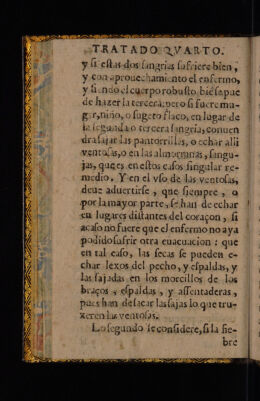 TRATADO QVARTO.
y si estas dos sangrias sufriere bien,
y con aprouechamiento el enfermo,
y siendo el cuerpo robusto, biē se pue
de hazer la tercera: pero si fuere mu-
ger, niño, o sugeto flaco, en lugar de
la segunda o tercera sangria, conuen
dra sajar las pantorrillas, o echar alli
ventosas, o en las almorranas, sangui-
jas, que es en estos casos singular re-
medio. Y en el vso de las ventosas,
deue aduertirse, que siempre, o
por la mayor parte, se han de echar
en lugares distantes del coraçon, si
acaso no fuere que el enfermo no aya
podido sufrir otra euacuacion: que
en tal caso, las secas se pueden e-
char lexos del pecho, y espaldas, y
las sajadas en los morcillos de los
braços, espaldas, y assentaderas,
pues han de sacar las sajas lo que tru-
xeren las ventosas.
Lo segundo se considere, si la fie-
bre